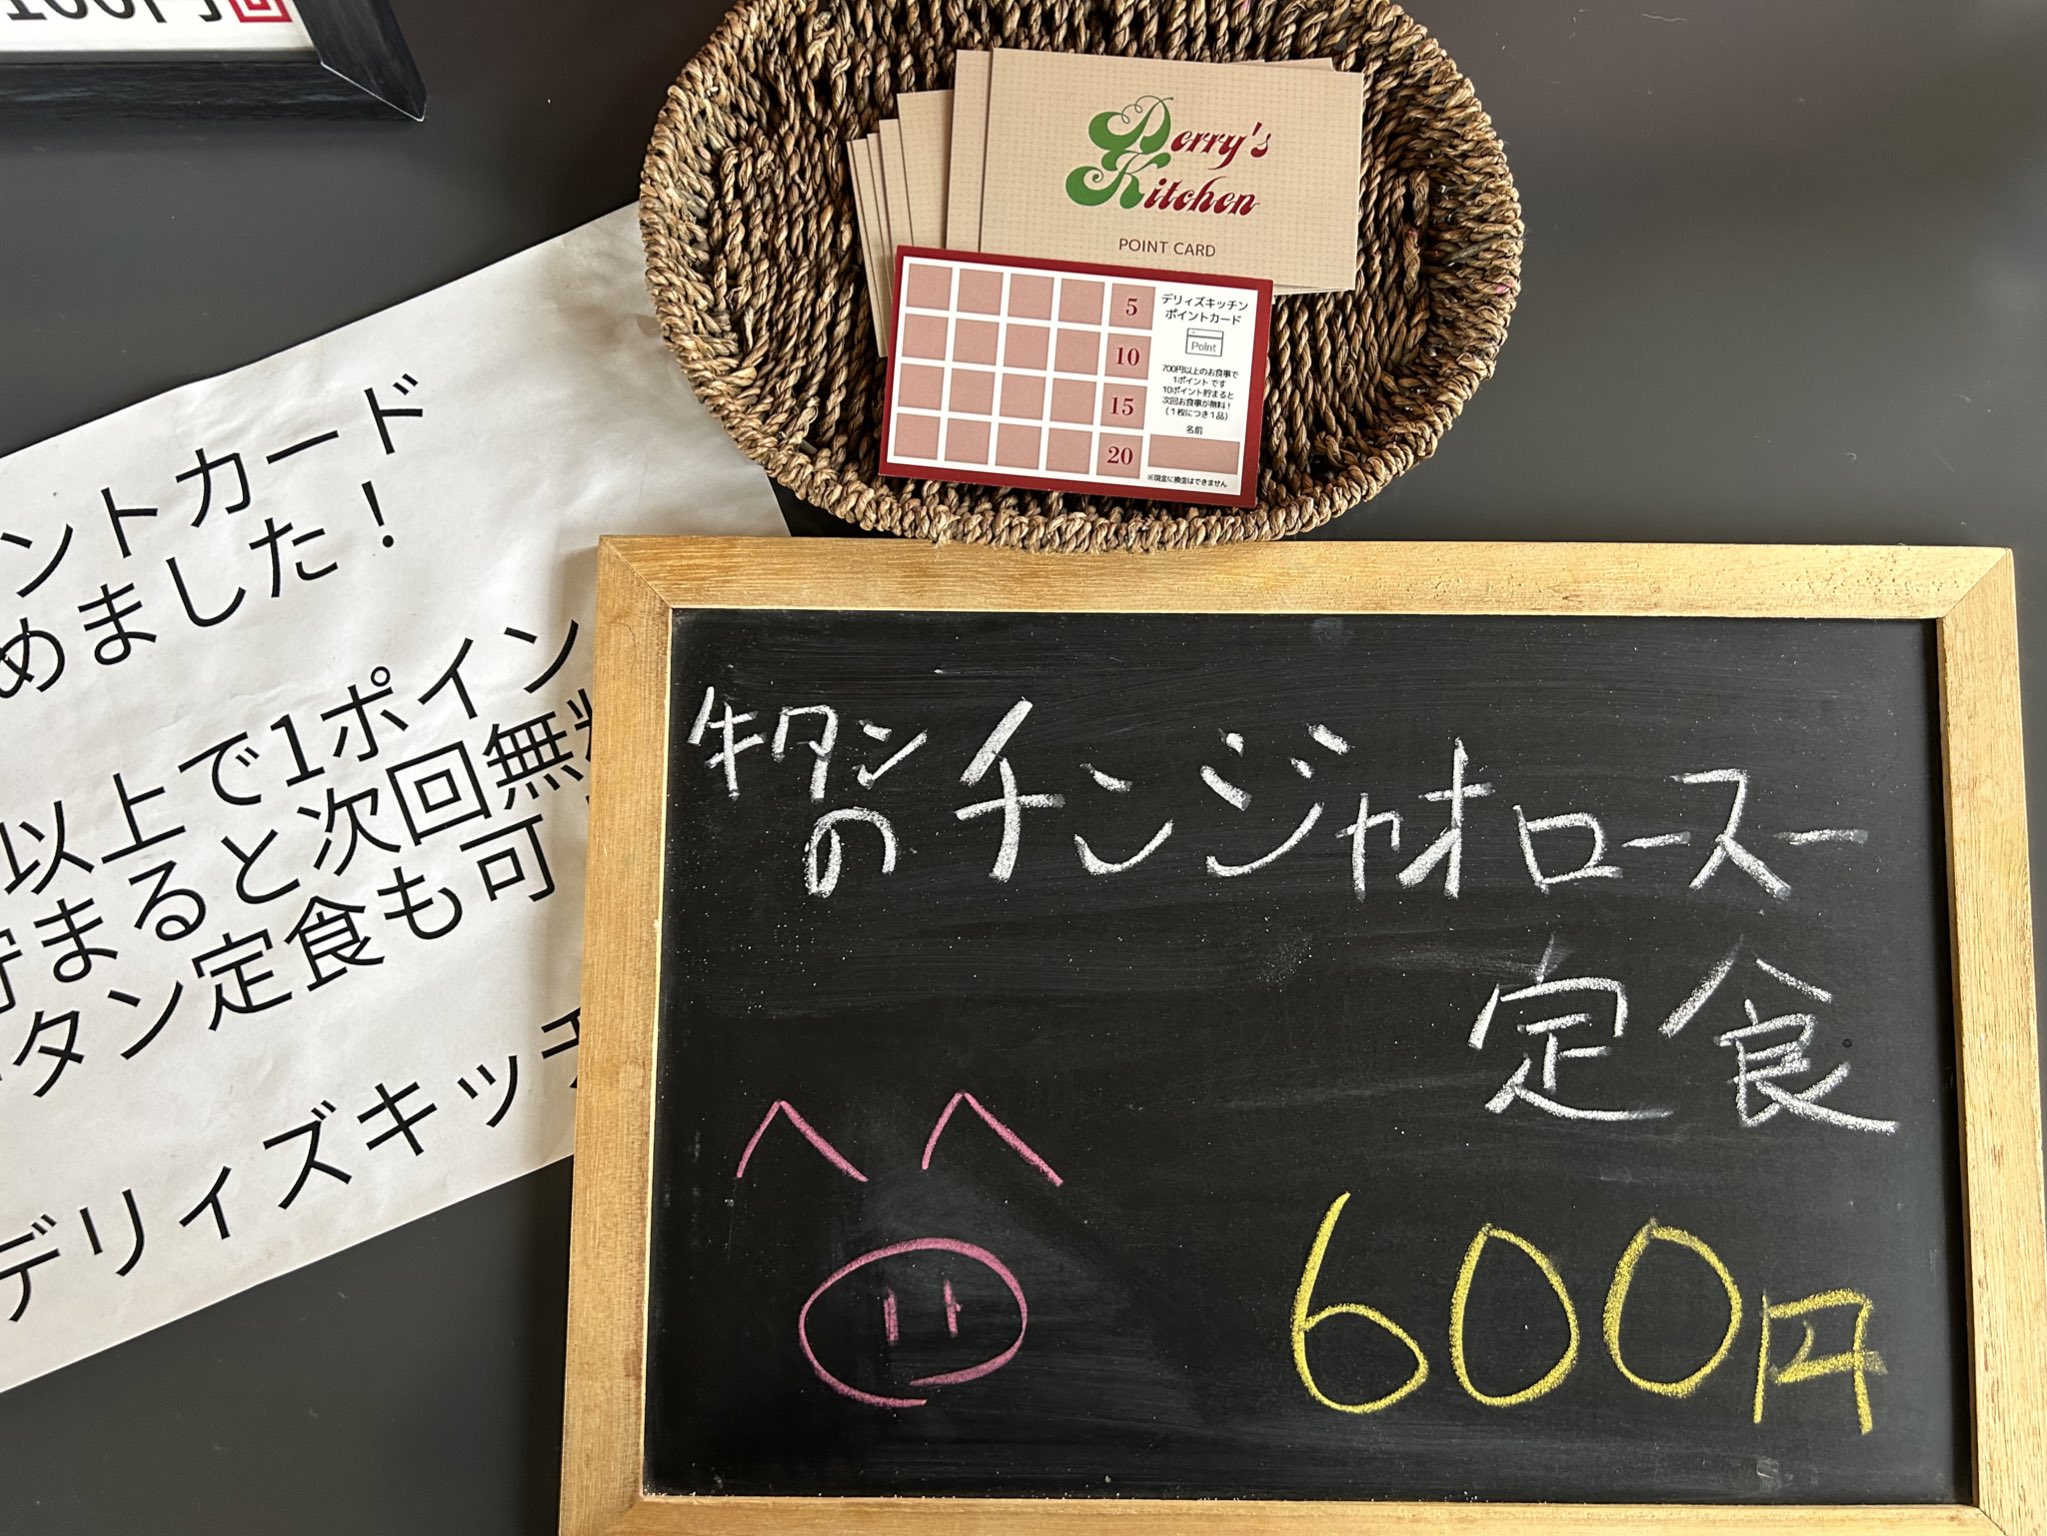 100円
Derry's
Kitchen
POINT CARD
5
10
15
20
デリィズキッチン
ポイントカード
Point
700円以上のお食事で
1ポイントです
10ポイント貯まると
次回お食事が無料！
（1枚につき1品）
名前
※現金に換金はできません
ントカード
めました！
以上で1ポイン
貯まると次回無料
タン定食も可
デリィズキッチ
牛タン
のチンジャオロースー
定食
600円